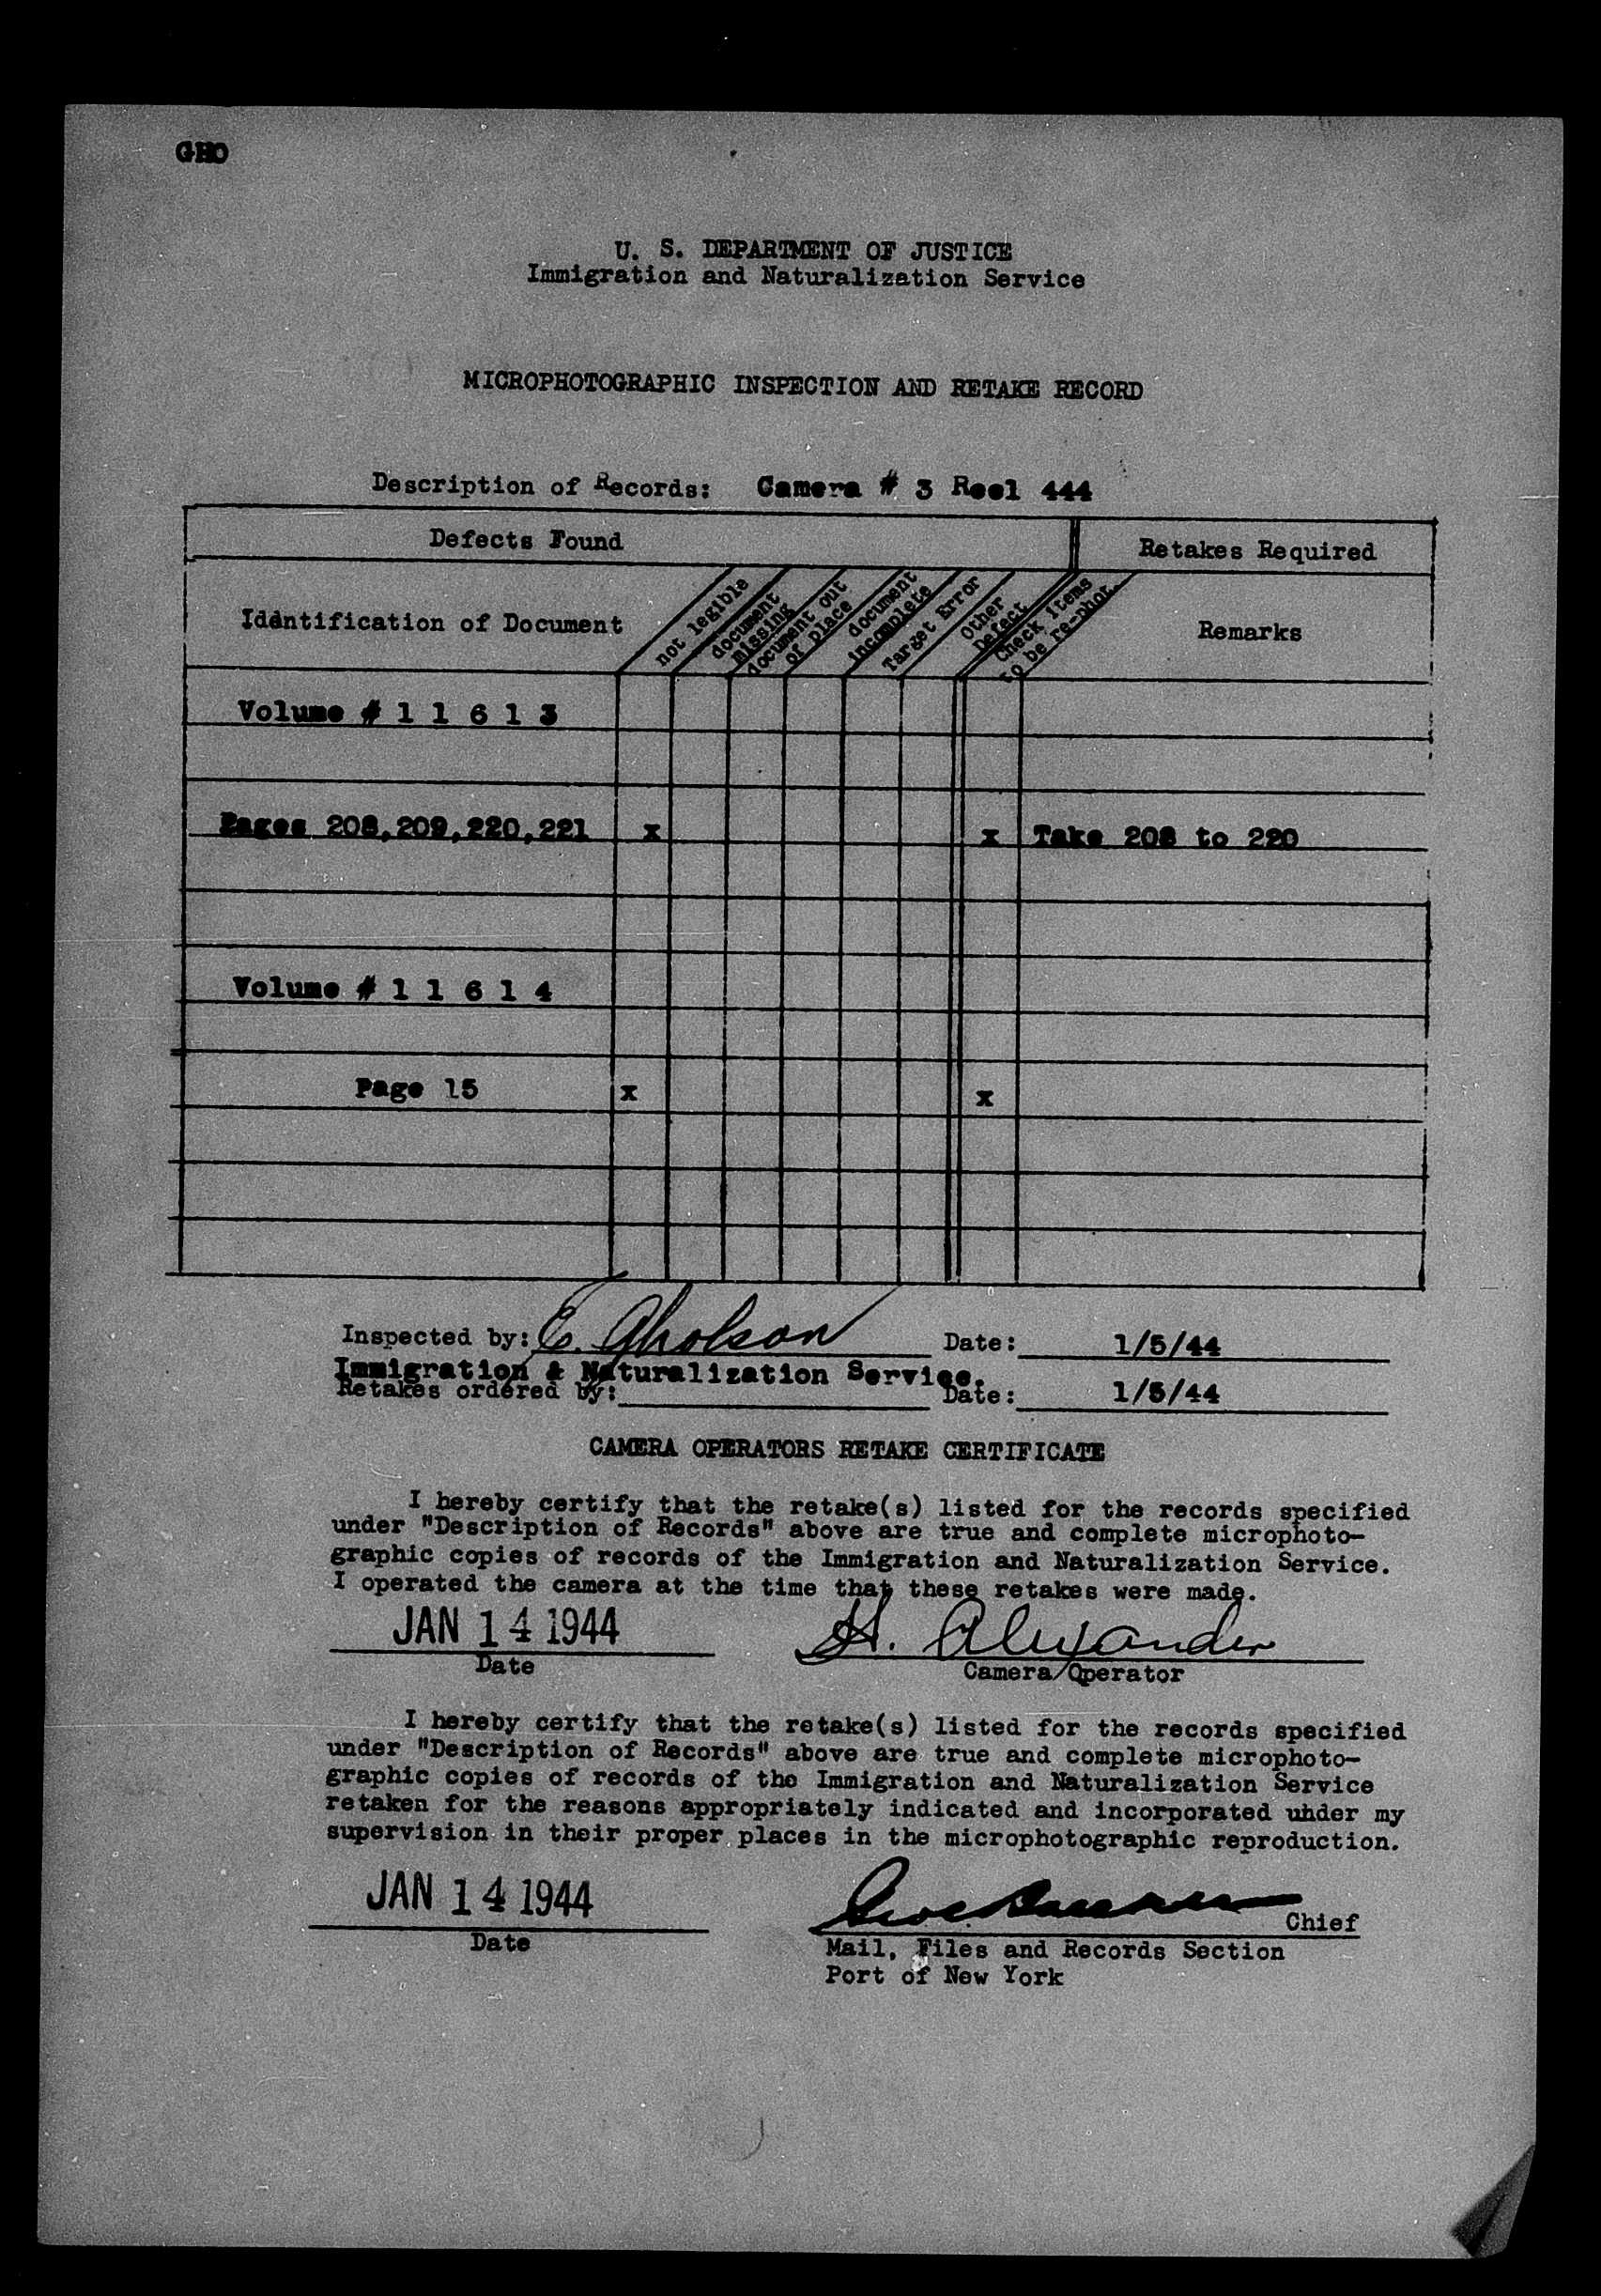 GHO
U. S. DEPARTMENT OF JUSTICE
Immigration and Naturalization Service
MICROPHOTOGRAPHIC INSPECTION AND RETAKE RECORD
Description of Records: Camera # 3 Reel 444
Defects Found
Retakes Required
Identification of Document
not legible
document
missing
document out
of place
document
incomplete
Target Error
Other
Defect
Check items
to be re-phot.
Remarks
Volume # 1 1 6 1 3
Pages 208,209,220,221 x x Take 208 to 220
Volume # 1 1 6 1 4
Page 15 x x
Inspected by: C. Gholson Date: 1/5/44
Immigration & Naturalization Service.
Retakes ordered by: Date: 1/5/44
CAMERA OPERATORS RETAKE CERTIFICATE
I hereby certify that the retake(s) listed for the records specified
under "Description of Records" above are true and complete microphoto-
graphic copies of records of the Immigration and Naturalization Service.
I operated the camera at the time that these retakes were made.
JAN 14 1944 H. Alexander
Date Camera Operator
I hereby certify that the retake(s) listed for the records specified
under "Description of Records" above are true and complete microphoto-
graphic copies of records of the Immigration and Naturalization Service
retaken for the reasons appropriately indicated and incorporated under my
supervision in their proper places in the microphotographic reproduction.
JAN 14 1944
Chief
Date
Mail, Files and Records Section
Port of New York